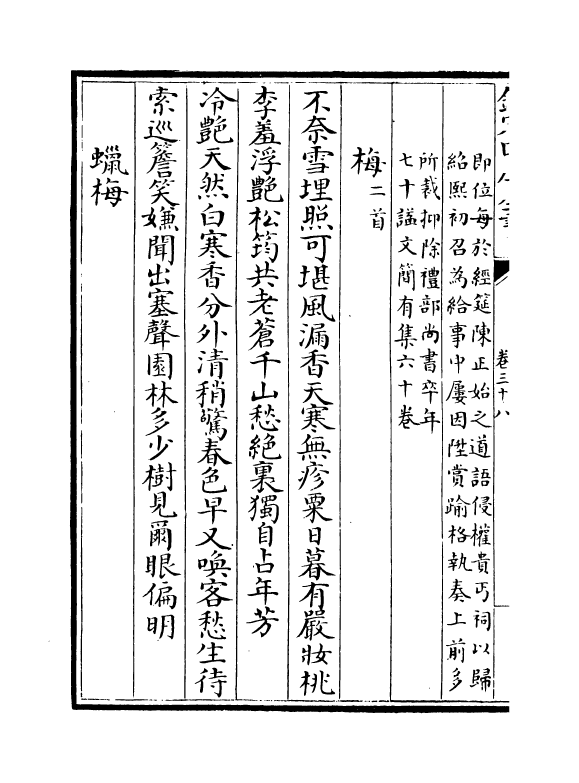 卷三十八
即位每於經筵陳正始之道語侵權貴丐祠以歸
紹熙初召為給事中屢因陞賞踰格執奏上前多
所裁抑除禮部尚書卒年
七十諡文簡有集六十卷
梅二首
不奈雪埋照可堪風漏香天寒無疹粟日暮有嚴妝桃
李羞浮艶松筠共老蒼千山愁絶裏獨自占年芳
冷艶天然白寒香分外清稍驚春色早又喚客愁生待
索巡簷笑嫌聞出塞聲園林多少樹見爾眼偏明
蠟梅